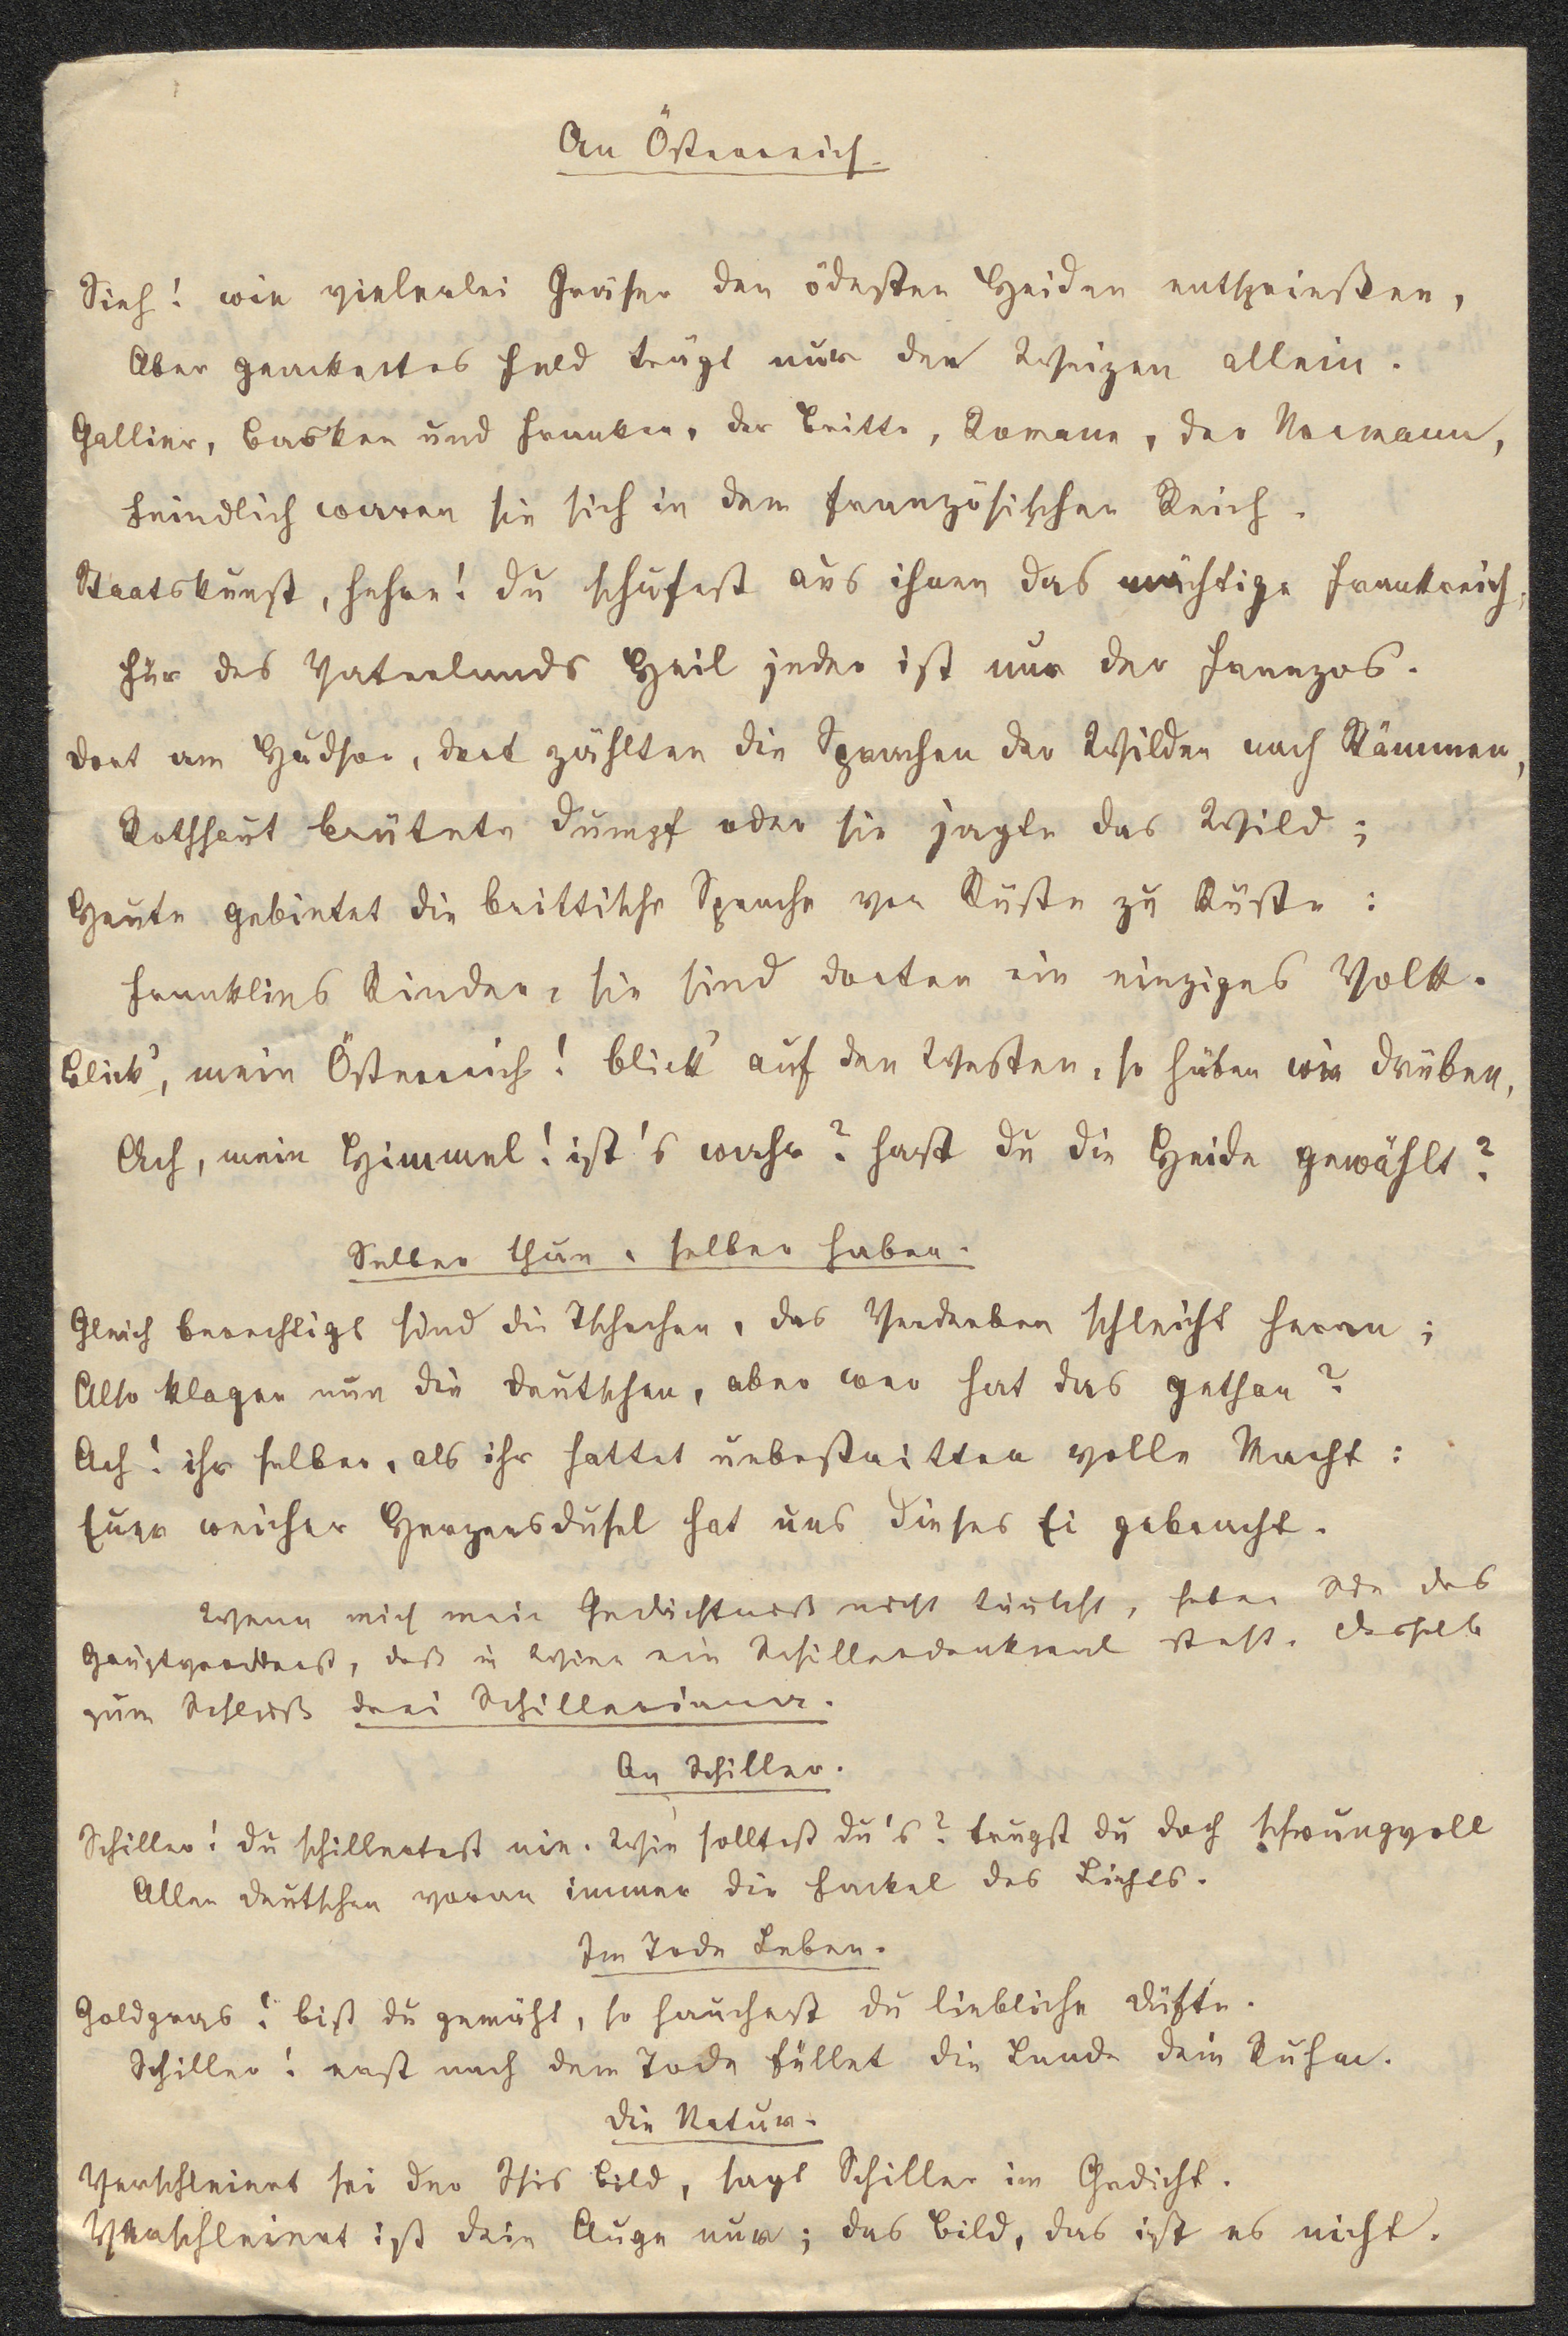 An Österreich.
Sieh! wie vielerlei Gräser den ödesten Heiden entsprießen,
Aber geackertes Feld trägt nur den Weizen allein.
Gallier, Basken und Franken, der Britte, Romane, der Normann,
Feindlich waren sie sich in dem französischen Reich.
Staatskunst, hehre! du schufest aus ihnen das mächtige Frankreich,
Für des Vaterlands Heil jeder ist nur der Franzos.
Dort am Hudson, dort zählten die Sprachen der Wilden nach Stämmen,
Rothhaut brütete dumpf oder sie jagte das Wild;
Heute gebietet die brittische Sprache von Küste zu Küste:
Franklins Kinder, sie sind dorten ein einziges Volk.
Blick', mein Österreich! blick' auf den Westen, so hüben wie drüben,
Ach, mein Himmel! ist's wahr? hast du die Heide gewählt?
Selber thun, selber haben.
Gleich berechtigt sind die Tschechen, das Verderben schleicht heran;
Also klagen nun die Deutschen, aber wer hat das gethan?
Ach! ihr selber, als ihr hattet unbestritten volle Macht:
Euer weicher Herzensdusel hat uns dieses Ei gebracht.
Wenn mich mein Gedächtniß nicht täuscht, haben Sie das
Hauptverdienst, daß in Wien ein Schillerdenkmal steht. Deshalb
zum Schluß drei Schilleriana.
An Schiller.
Schiller! du schillertest nie. Wie solltest du's? trugst du doch schwungvoll
Allen Deutschen voran immer die Fackel des Lichts.
Im Tode Leben.
Goldgras! bist du gemäht, so hauchest du liebliche Düfte.
Schiller! erst nach dem Tode füllet die Lande dein Ruhm.
Die Natur.
Verschleiert sei der Isis Bild, sagt Schiller im Gedicht.
Verschleiert ist dein Auge nur; das Bild, das ist es nicht.